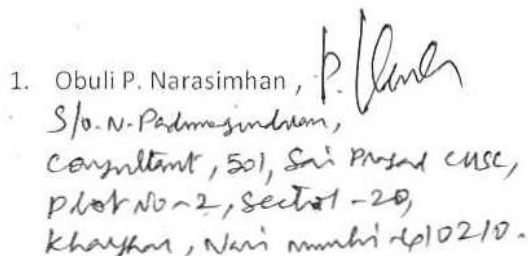 1. Obuli P. Narasimhan,
S/o. N. Padmasundaram,
Consultant, 501, Sai Prasad CHSL,
Plot No-2, Sector-20,
Kharghar, Navi mumbai-410210.